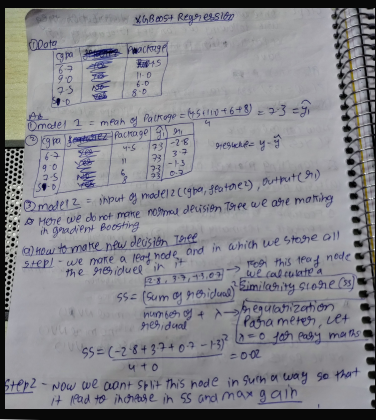 XGBoost Regression
① Data
cgpa package
6.7 4.5
9.0 11.0
7.5 6.0
5.0 8.0
① model 1 = mean of Package = (4.5+11.0+6+8)/4 = 7.3 = ŷ₁
② cgpa package ŷ₁ r₁
6.7 4.5 7.3 -2.8
9.0 11 7.3 3.7
7.5 6 7.3 -1.3
5.0 8 7.3 0.7
residue = y-ŷ
③ model 2 = input of model 2 (cgpa, feature2), output (r₁)
Here we do not make normal decision Tree we are making
in gradient Boosting
① How to make new decision Tree
Step1 - we make a leaf node, and in which we store all
the residual in it
→ For this leaf node
we calculate a
Similarity score (SS)
SS = (Sum of residual)²
number of + λ
residual
→ regularization
Parameter, Let
λ = 0 for easy maths
SS = (-2.8+3.7+0.7-1.3)² = 0.02
4+0
Step2 - Now we want split this node in such a way so that
it lead to increase in SS and max gain